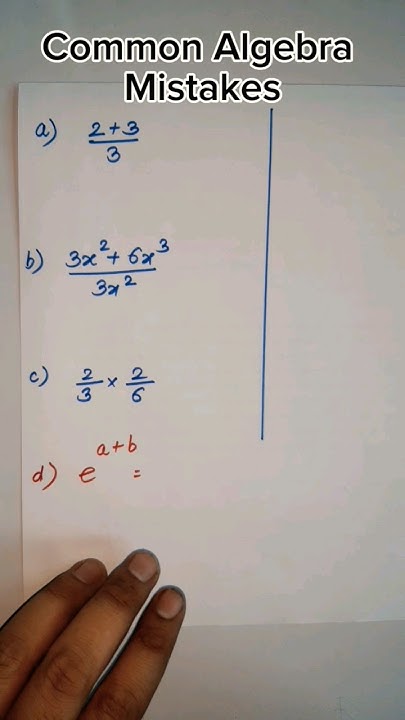 Common Algebra
Mistakes
a) (2+3)/3
b) (3x² + 6x³)/(3x²)
c) 2/3 × 2/6
d) e^(a+b) =